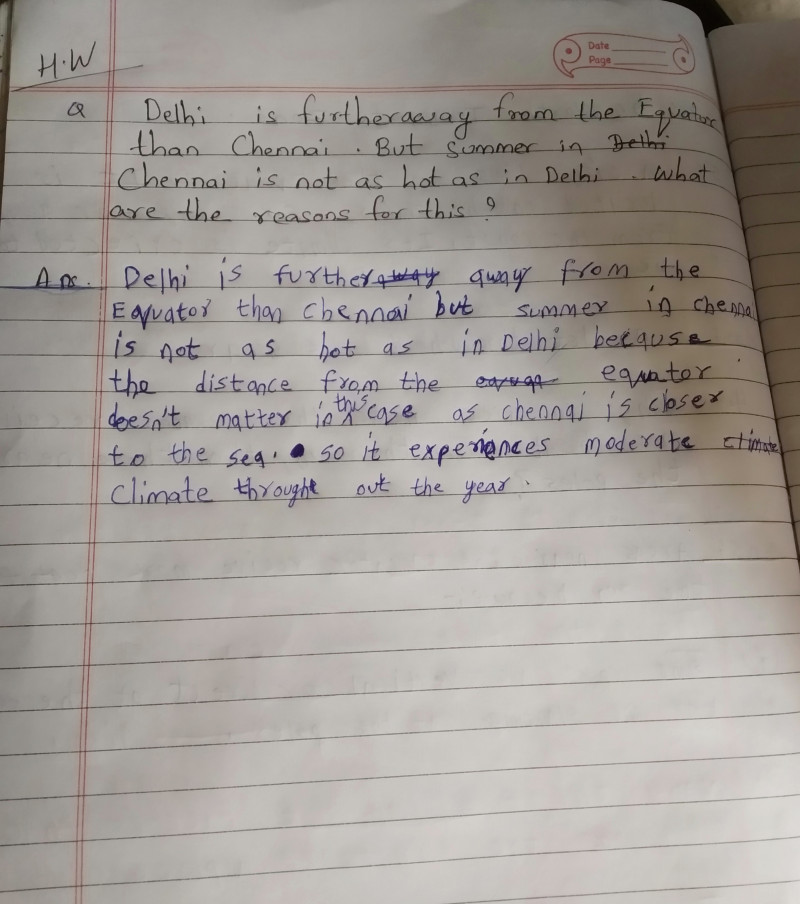 H.W
Date
Page
Q Delhi is furtheraway from the Equator
than Chennai. But Summer in Delhi
Chennai is not as hot as in Delhi. What
are the reasons for this?
Ans. Delhi is furtheraway away from the
Equator than Chennai but summer in chennai
is not as hot as in Delhi because
the distance from the equator
doesn't matter in this case as chennai is closer
to the sea. so it experiences moderate climate
Climate throught out the year.